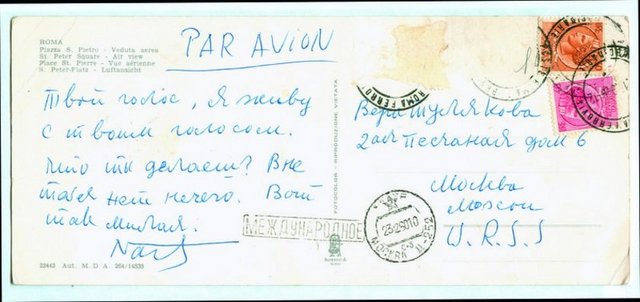 ROMA
Piazza S. Pietro - Veduta aerea
St. Peter Square - Air view
Place St. Pierre - Vue aérienne
S. Peter-Platz - Luftansicht
PAR AVION
Твой голос, я живу
с твоим голосом.
Что ты делаешь? Вне
тебя нет ничего. Вот
так милая.
Вера Тулякова
2ая Песчаная дом 6
Москва
Moscow
U.R.S.S
МЕЖДУНАРОДНОЕ
FOTOCOLOR - RIPRODUZIONE VIETATA
ROMA FERROV
МОСКВА
22443 Aut. M. D. A. 264/14535